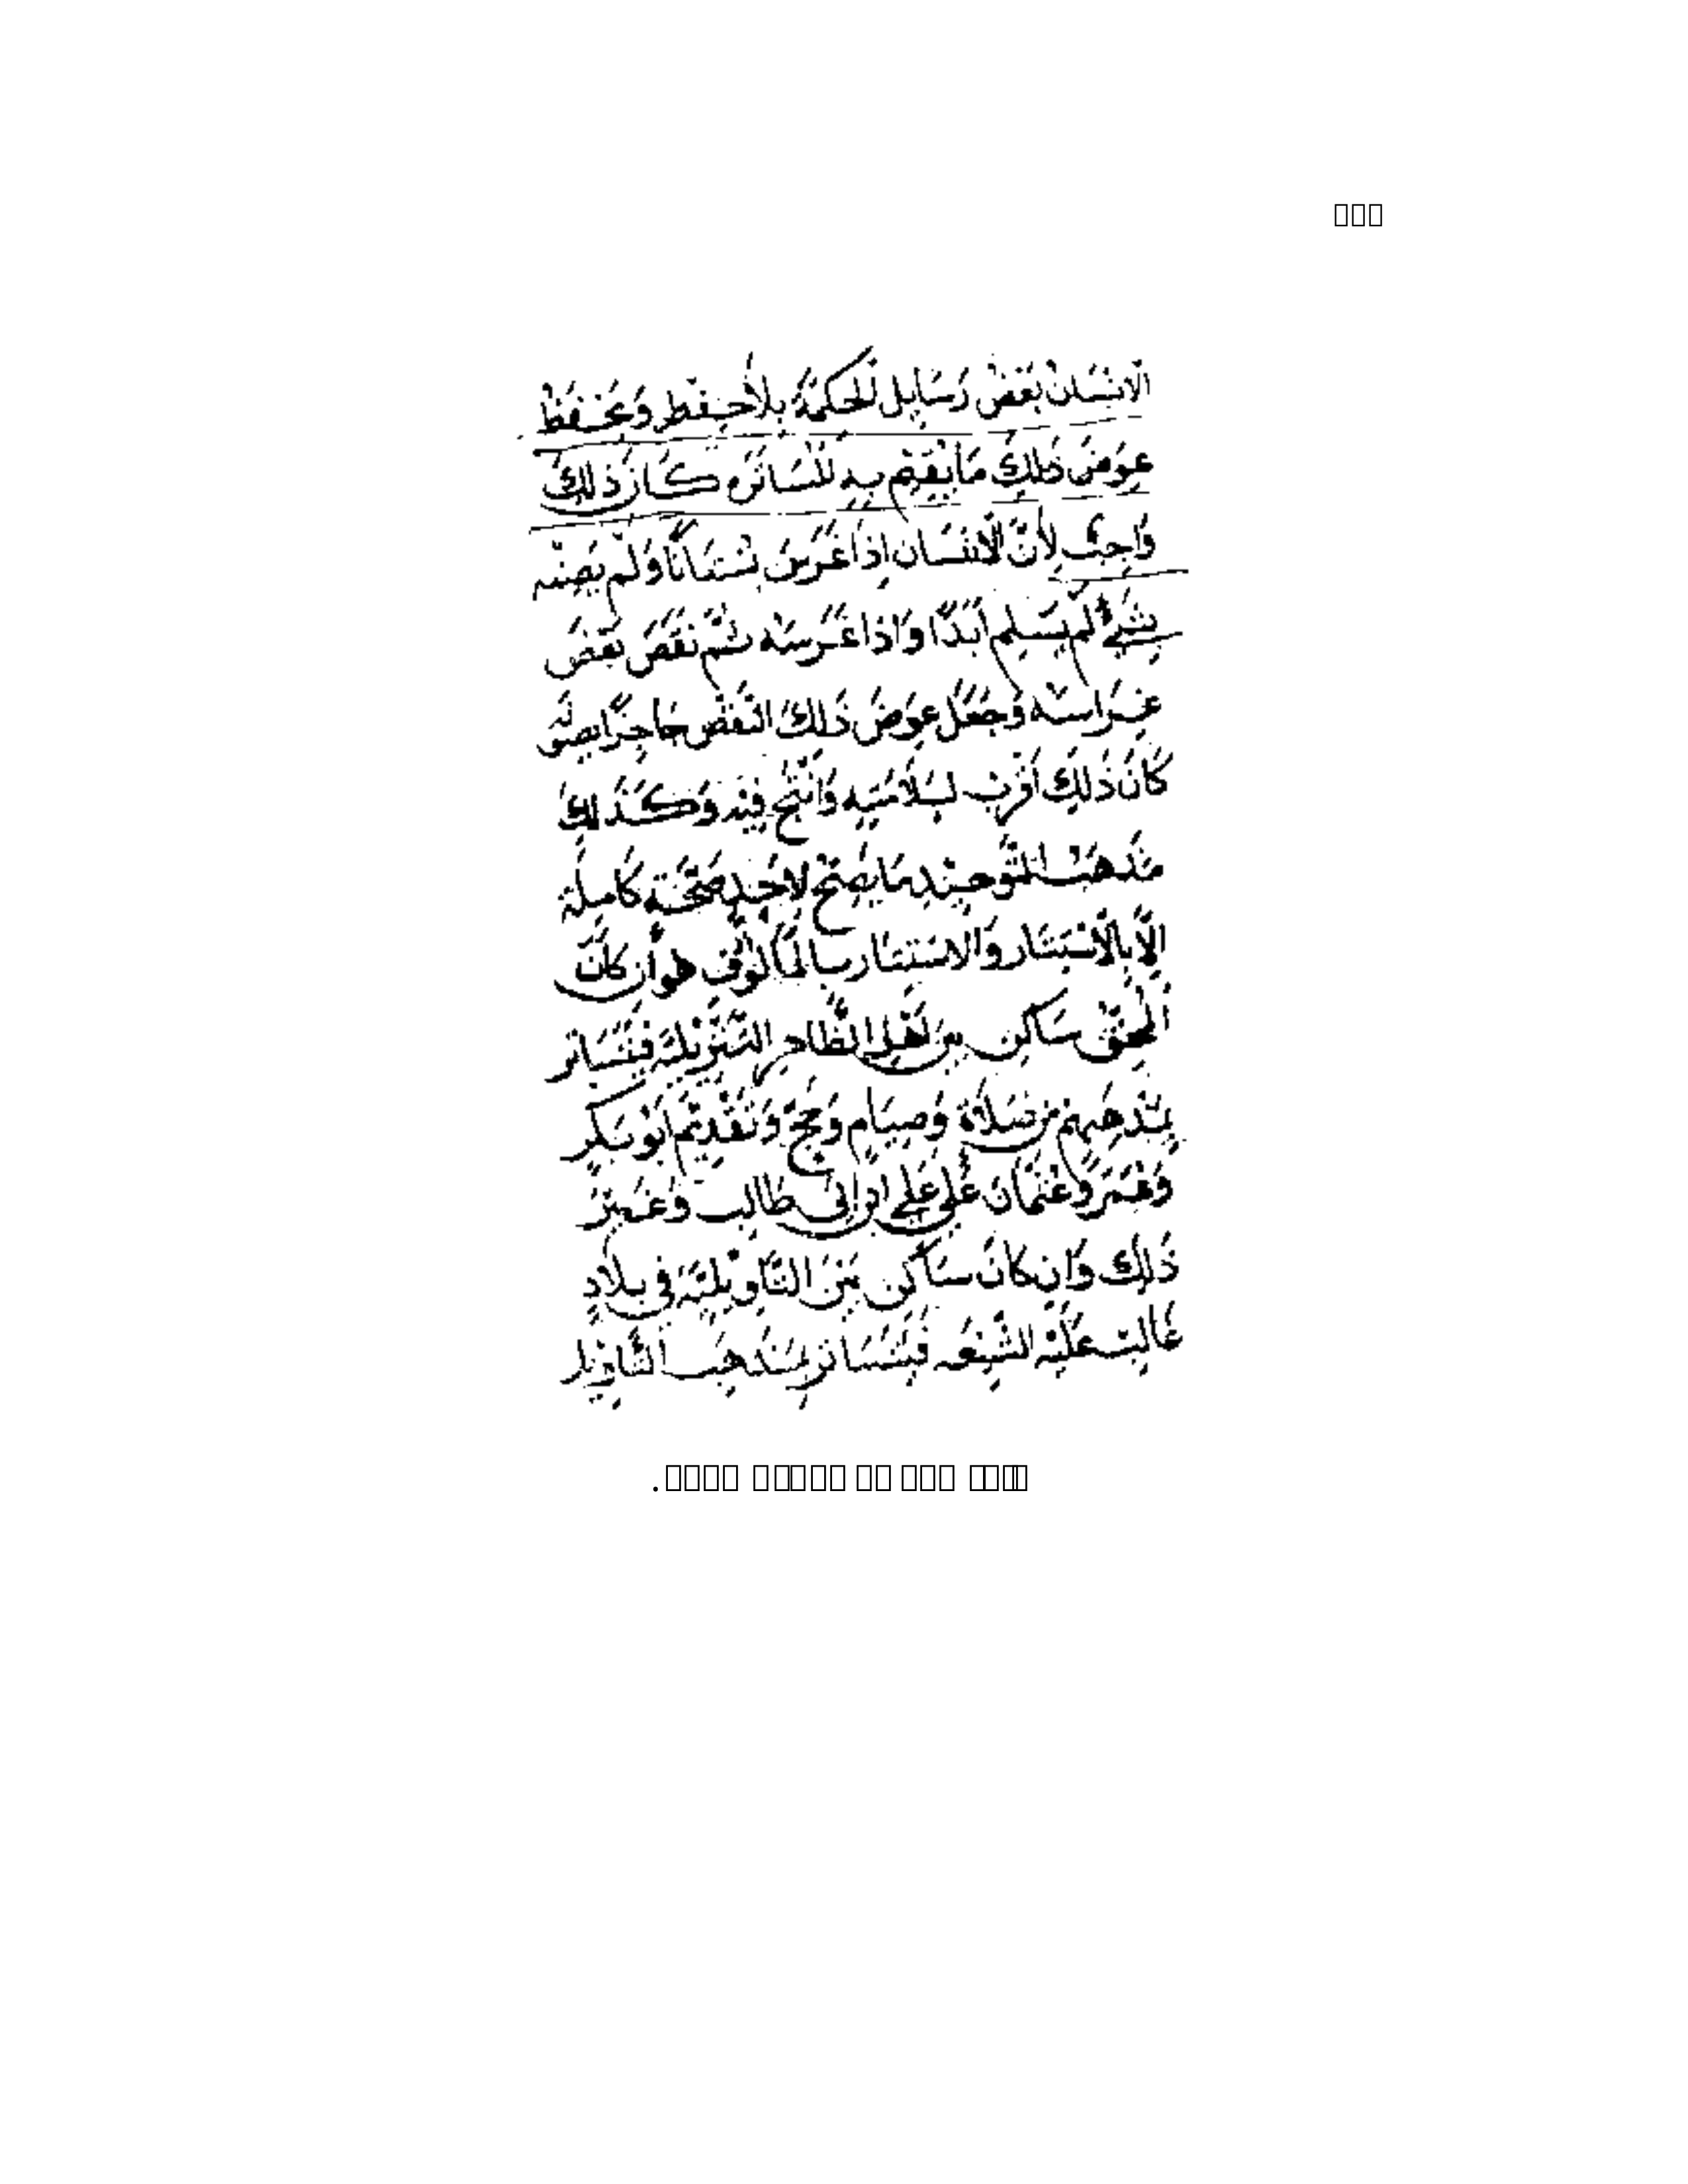 الانسان بعض رسايل الحكمة بلا حفظ وحفظ
عوض ذلك ما يقيم به للساتره كان ذلك
واجب لأن الانسان اذا غرس بستانا ولم يصنه
بشيء لم يسلم ابدا واذا غرسه ثم نقص بعض
غراسه وجعل عوض ذلك النقض حاجزا يصونه
كان ذلك اقرب لسلامته وانجح فيه وكذلك
مذهب التوحيد ما يصح لاحد صحة كاملة
إلا بالاستتار والاستتار بالمالوف هو أن كان
المحق ساكن بين اهل الظاهر التنزيلية فيتساتر
بمذهبهم من صلاة وصيام وحج وتقديم ابو بكر
وعمر وعثمان على علي ابو ابي طالب وغير
ذلك وان كان ساكن بين التاويلية في بلاد
غالب عليه الشيعه فيتساتر بمذهب التاويل